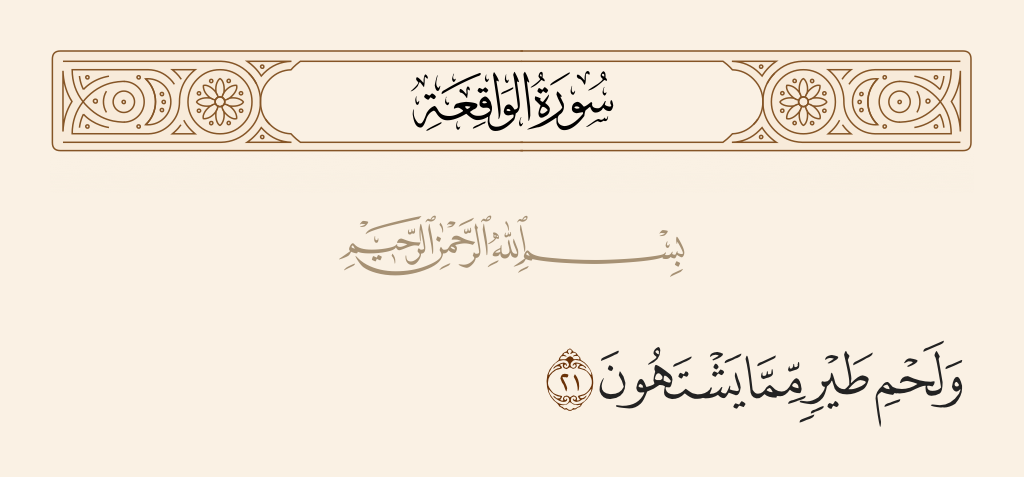 سُورَةُ الوَاقِعَةِ
بِسْمِ ٱللَّهِ ٱلرَّحْمَٰنِ ٱلرَّحِيمِ
وَلَحْمِ طَيْرٍ مِّمَّا يَشْتَهُونَ ٢١